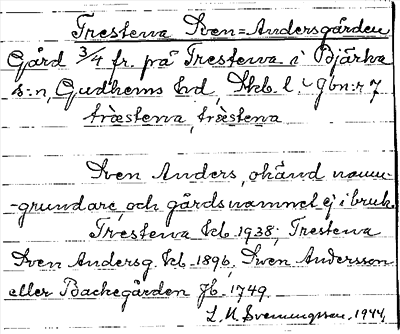 Trestena Sven=Andersgården
Gård 3/4 fr. på Trestena i Bjärka
s:n, Gudhems hd, Skb. l. Gbn:r 7
træstena, træstena
Sven Anders, okänd namn-
-grundare, och gårdsnamnet ej i bruk.
Trestena kb. 1938; Trestena
Sven Andersg. kb. 1896, Sven Andersson
eller Backegården Jb. 1749.
L. N. Svenungsson. 1944.